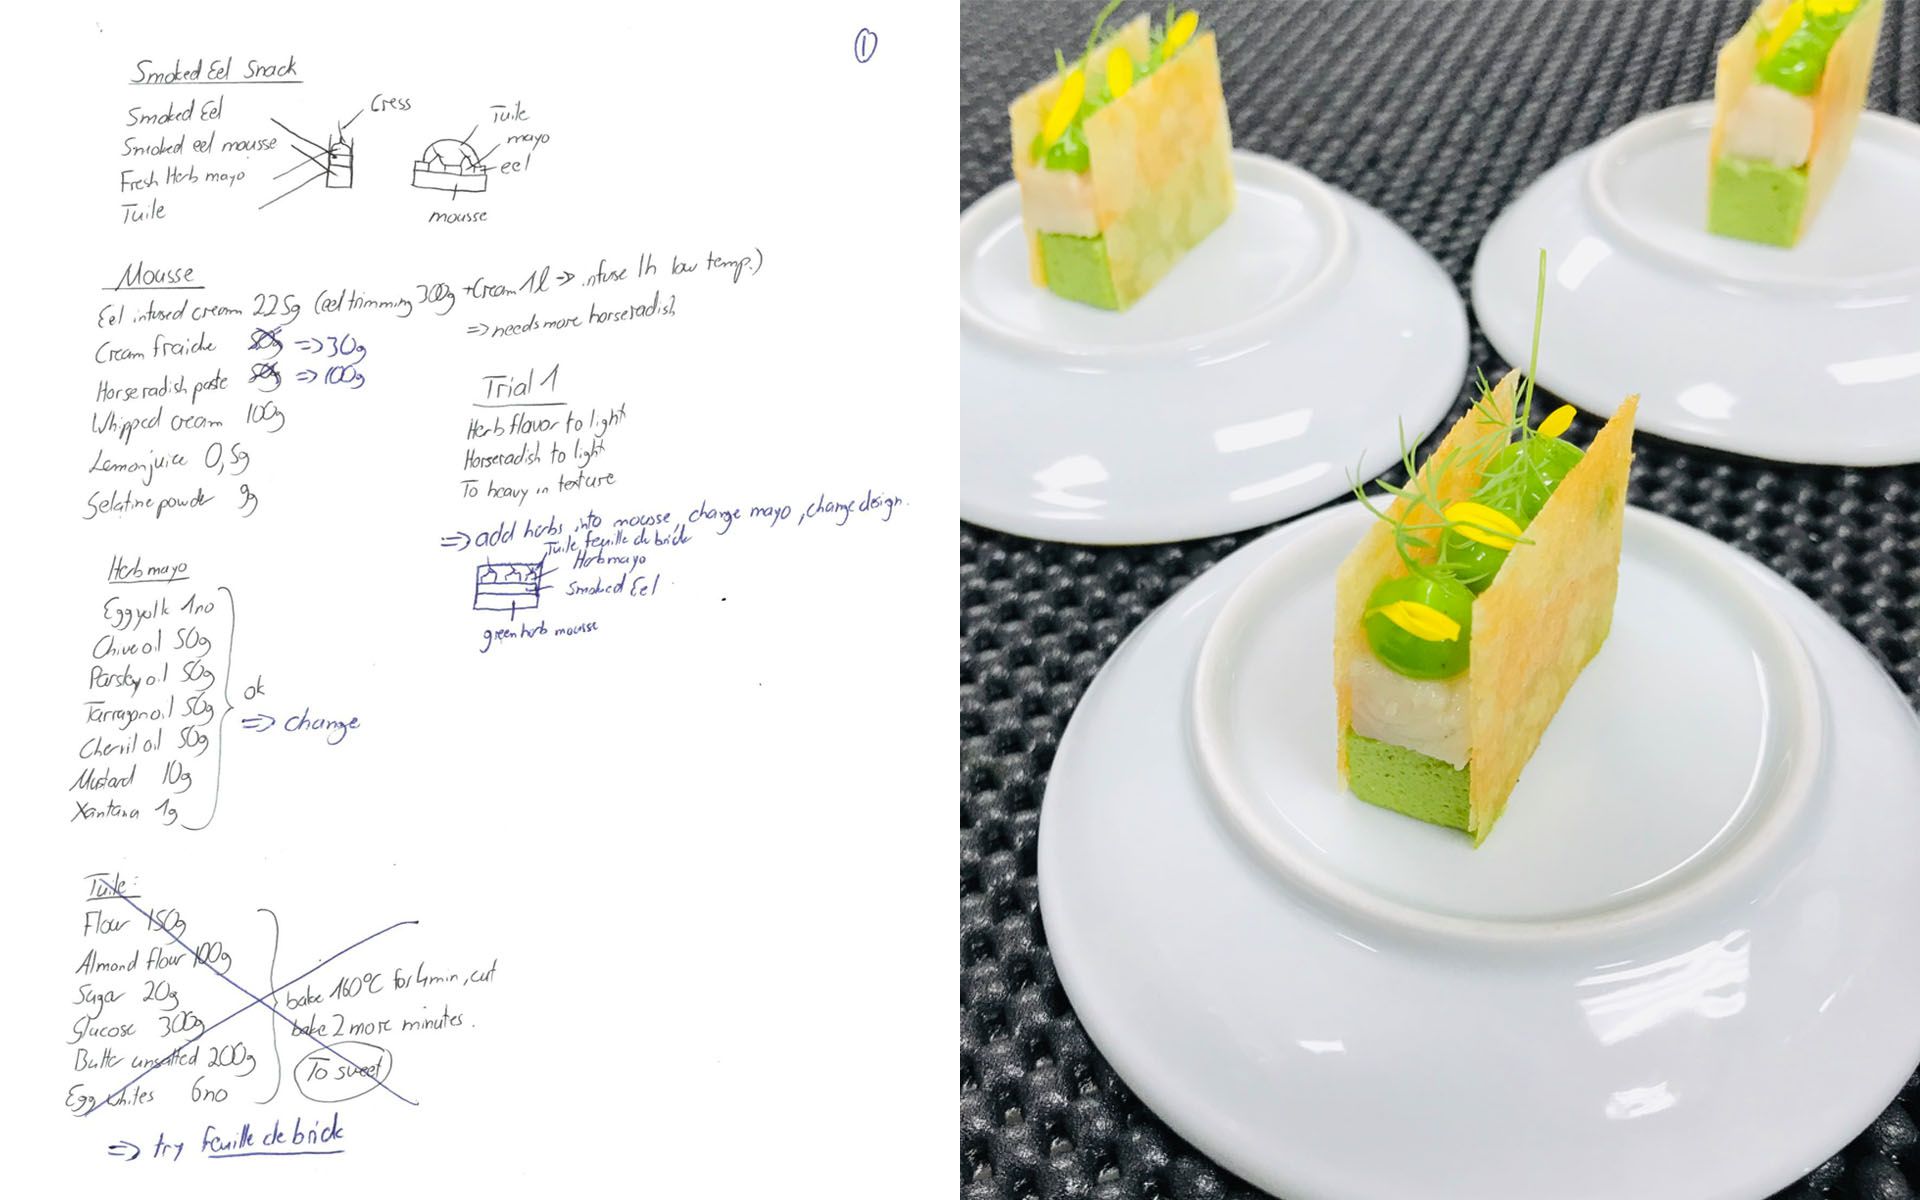 ①
Smoked Eel Snack
Smoked Eel
Smoked eel mousse
Fresh Herb mayo
Tuile
Cress
Tuile
mayo
eel
mousse
Mousse
Eel infused cream 225g (eel trimming 300g + Cream 1l => infuse 1h low temp.)
=> needs more horseradish
Cream fraiche 50g => 30g
Horseradish paste 50g => 100g
Whipped cream 100g
Lemonjuice 0,5g
Gelatine powder 9g
Trial 1
Herb flavor to light
Horseradish to light
To heavy in texture
=> add herbs into mousse, change mayo, change design.
Tuile feuille de brick
Herb mayo
Smoked Eel
green herb mousse
Herb mayo
Egg yolk 1no
Chive oil 50g
Parsley oil 50g
Tarragon oil 50g
Chervil oil 50g
Mustard 10g
Xantana 1g
ok
=> change
Tuile:
Flour 150g
Almond flour 100g
Sugar 20g
Glucose 300g
Butter unsalted 200g
Egg whites 6no
bake 160°C for 4min, cut
bake 2 more minutes.
To sweet
=> try feuille de brick